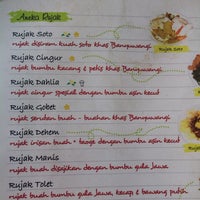 Aneka Rujak
Rujak Soto
rujak disiram kuah soto khas Banyuwangi
Rujak Soto
Rujak Cingur
rujak bumbu kacang & petis khas Banyuwangi
Rujak Dahlia
cingur spesial dengan bumbu asin kecut
Rujak Gobet
rujak serutan buah - buahan khas Banyuwangi
Rujak Dehem
rujak irisan buah + taoge dengan bumbu asin kecut
Rujak Manis
rujak buah disajikan dengan bumbu gula Jawa
Rujak Tolet
rujak buah bumbu gula Jawa, kecap & bawang putih